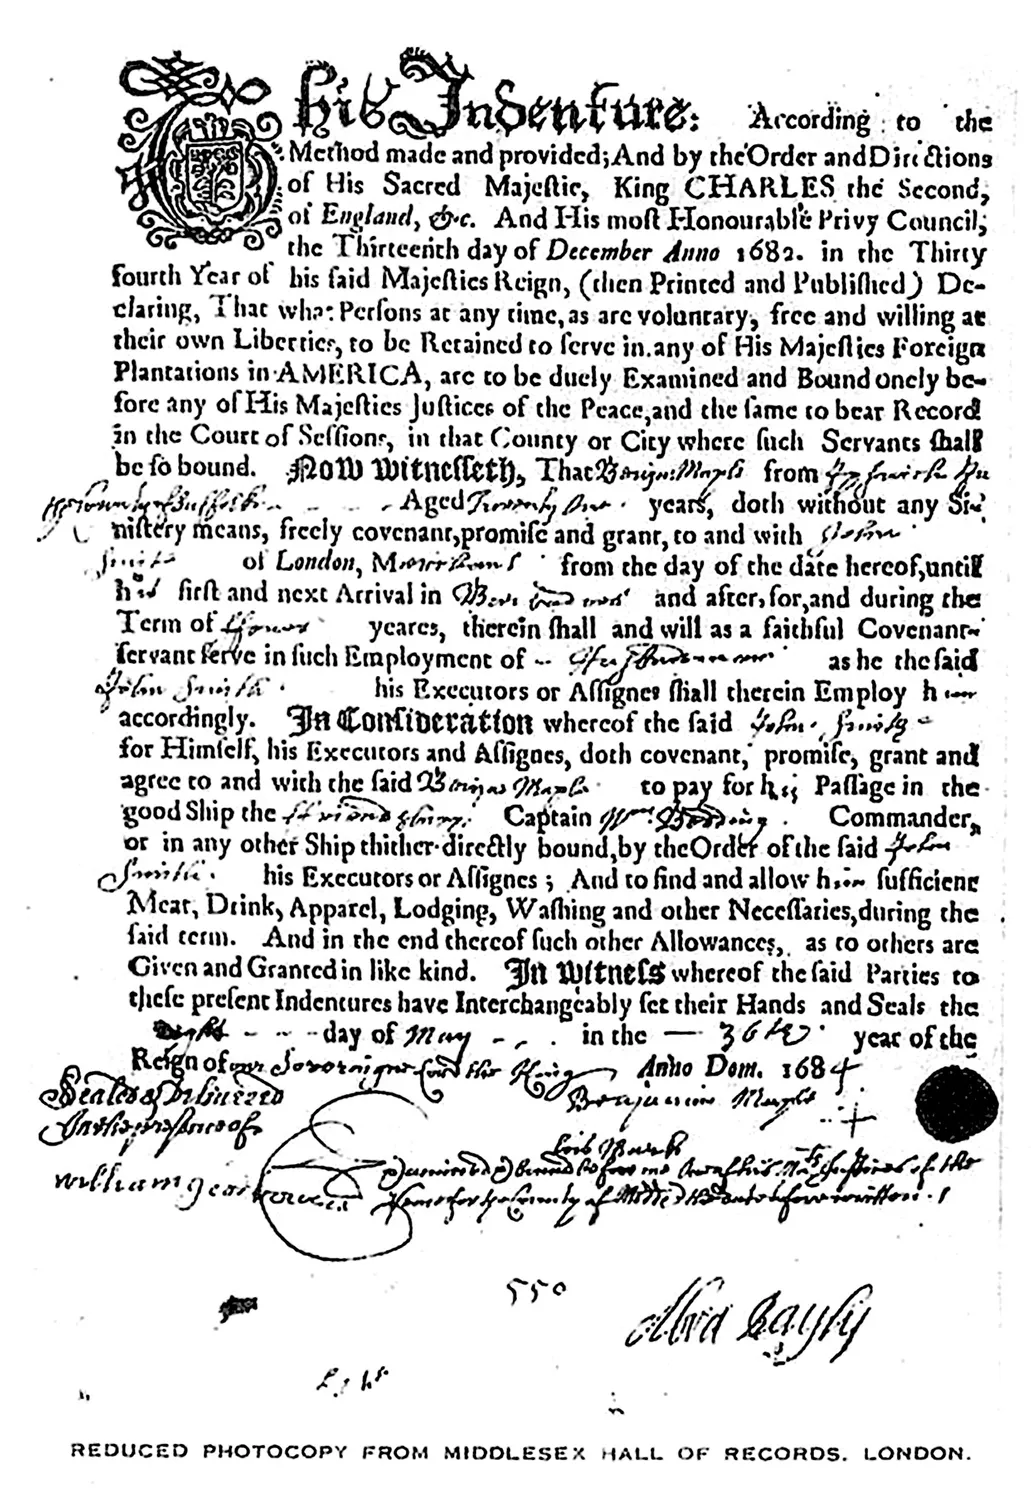 This Indenture: According to the
Method made and provided; And by the Order and Directions
of His Sacred Majestie, King CHARLES the Second,
of England, &c. And His most Honourable Privy Council;
the Thirteenth day of December Anno 1682. in the Thirty
fourth Year of his said Majesties Reign, (then Printed and Published) De-
claring, That what Persons at any time, as are voluntary, free and willing at
their own Liberties, to be Retained to serve in any of His Majesties Foreign
Plantations in AMERICA, are to be duely Examined and Bound onely be-
fore any of His Majesties Justices of the Peace, and the same to bear Record
in the Court of Sessions, in that County or City where such Servants shall
be so bound. Now Witnesseth, That from
County of Suffolk Aged Twenty One years, doth without any Si-
nistery means, freely covenant, promise and grant, to and with John
Smith of London, from the day of the date hereof, until
his first and next Arrival in and after, for, and during the
Term of yeares, therein shall and will as a faithful Covenant-
servant serve in such Employment of as he the said
John Smith his Executors or Assignes shall therein Employ h
accordingly. In Consideration whereof the said John Smith
for Himself, his Executors and Assignes, doth covenant, promise, grant and
agree to and with the said to pay for his Passage in the
good Ship the Captain Wm. Commander,
or in any other Ship thither directly bound, by the Order of the said John
Smith his Executors or Assignes; And to find and allow h sufficient
Meat, Drink, Apparel, Lodging, Washing and other Necessaries, during the
said term. And in the end thereof such other Allowances, as to others are
Given and Granted in like kind. In Witness whereof the said Parties to
these present Indentures have Interchangeably set their Hands and Seals the
Eight day of May in the 36th year of the
Reign of our Soveraigne Lord the King Anno Dom. 1684
Sealed & Delivered
In the presence of
Benjamin
his Mark
William
550
REDUCED PHOTOCOPY FROM MIDDLESEX HALL OF RECORDS. LONDON.